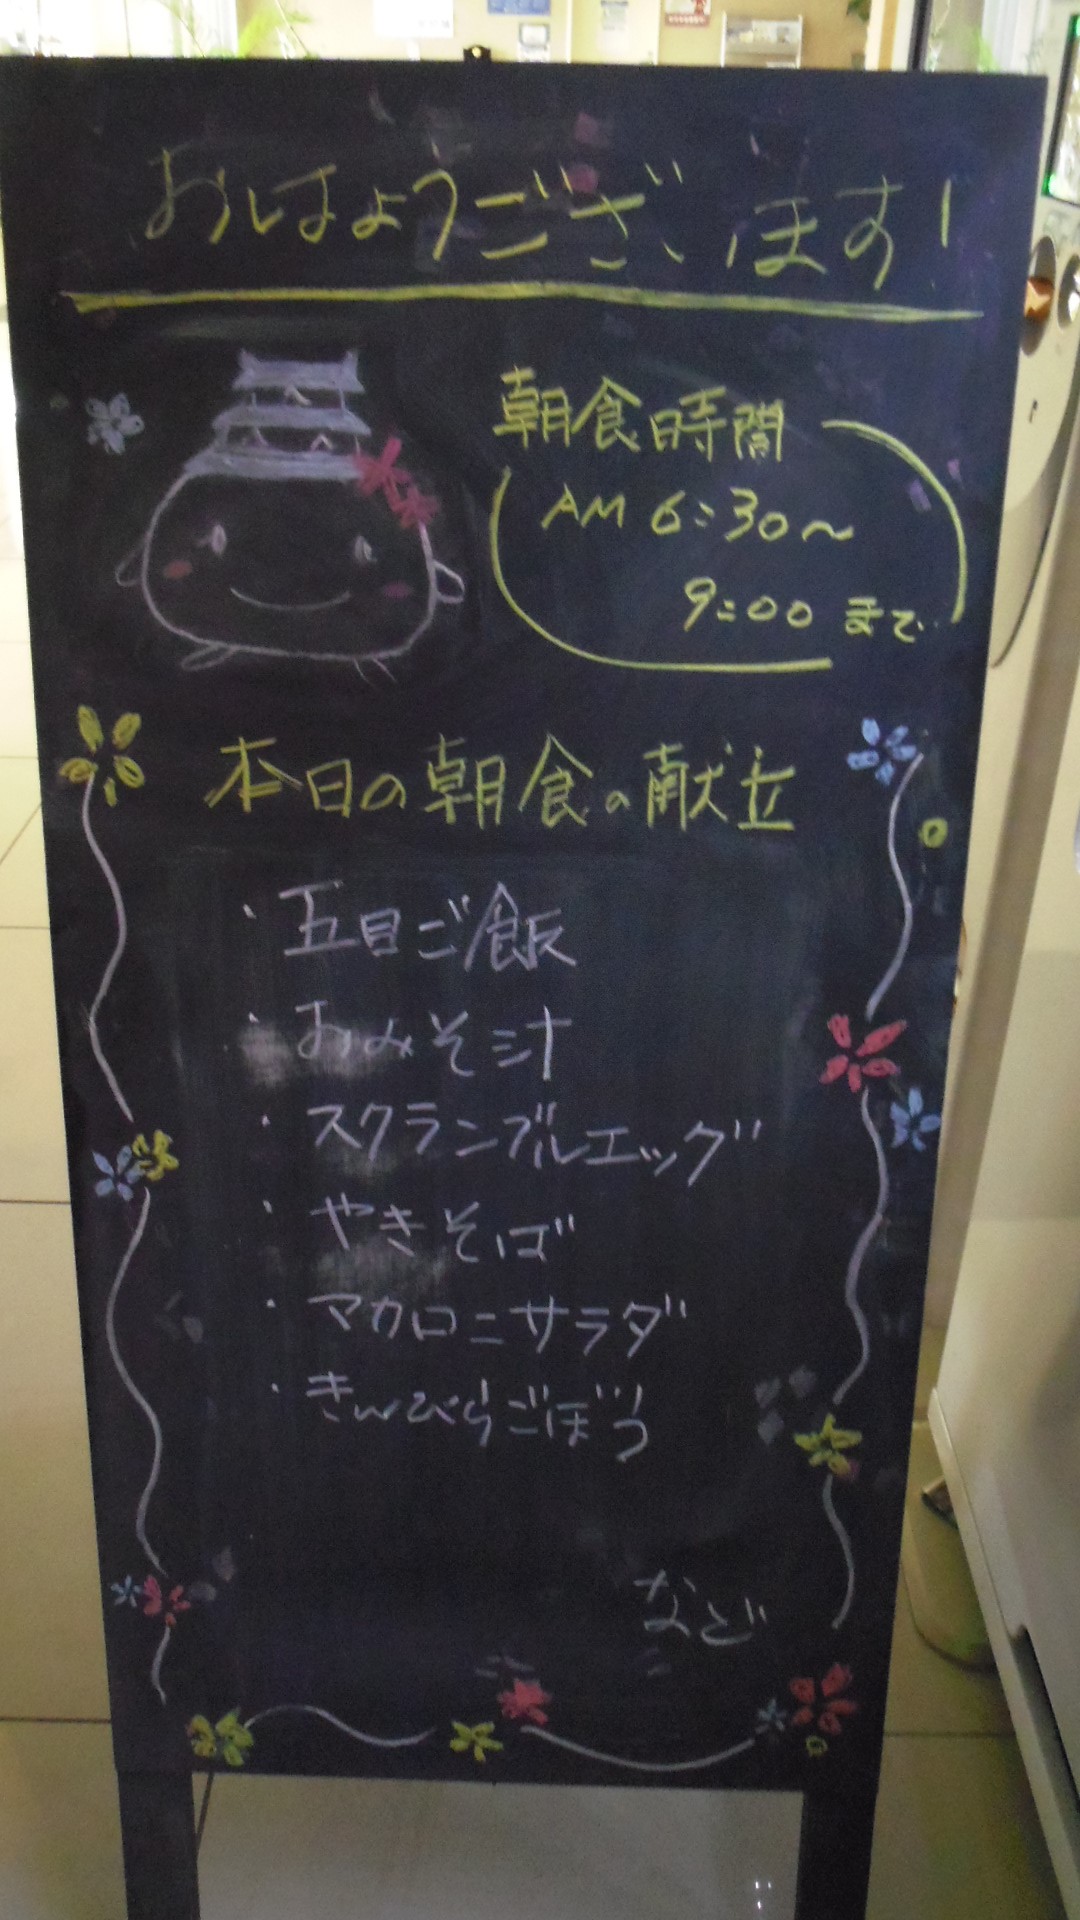 おはようございます!
朝食時間
AM 6:30〜
9:00 まで
本日の朝食の献立
・五目ご飯
・おみそ汁
・スクランブルエッグ
・やきそば
・マカロニサラダ
・きんぴらごぼう
など